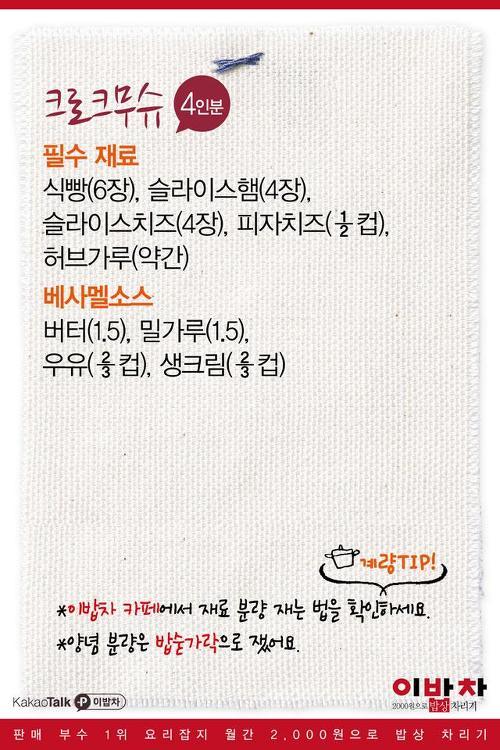 크로크무슈 4인분
필수 재료
식빵(6장), 슬라이스햄(4장),
슬라이스치즈(4장), 피자치즈(½컵),
허브가루(약간)
베사멜소스
버터(1.5), 밀가루(1.5),
우유(⅔컵), 생크림(⅔컵)
계량TIP!
*이밥차 카페에서 재료 분량 재는 법을 확인하세요.
*양념 분량은 밥숟가락으로 쟀어요.
이밥차
2000원으로 밥상 차리기
KakaoTalk P 이밥차
판매 부수 1위 요리잡지 월간 2,000원으로 밥상 차리기